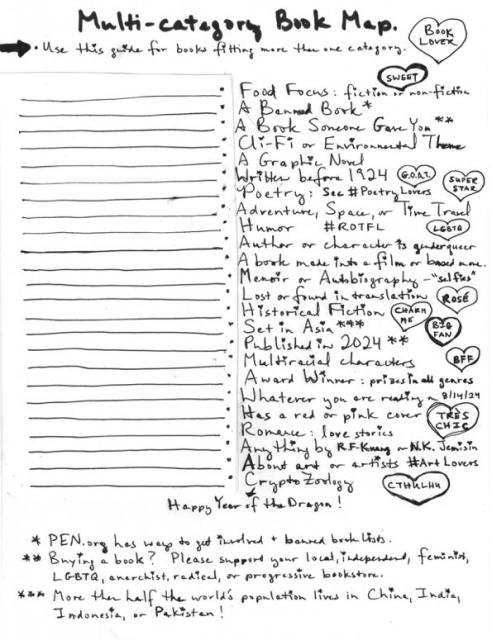 Multi-category Book Map.
• Use this guide for books fitting more than one category.
BOOK LOVER
SWEET
Food Focus: fiction or non-fiction
A Banned Book*
A Book Someone Gave You**
Cli-Fi or Environmental Theme
A Graphic Novel
Written before 1924
G.O.A.T.
SUPER STAR
Poetry: See #PoetryLovers
Adventure, Space, or Time Travel
Humor #ROTFL
LGBTQ
Author or character is genderqueer
A book made into a film or based on one.
Memoir or Autobiography - "selfies"
Lost or found in translation
ROSÉ
Historical Fiction
CHARM ME
Set in Asia***
BIG FAN
Published in 2024**
Multiracial characters
BFF
Award Winner: prizes in all genres
Whatever you are reading on 8/14/24
Has a red or pink cover
TRÈS CHIC
Romance: love stories
Anything by R.F. Kuang or N.K. Jemisin
About art or artists #ArtLovers
CryptoZoology
CTHULHU
Happy Year of the Dragon!
* PEN.org has ways to get involved + banned book lists.
** Buying a book? Please support your local, independent, feminist,
LGBTQ, anarchist, radical, or progressive bookstore.
*** More than half the world's population lives in China, India,
Indonesia, or Pakistan!